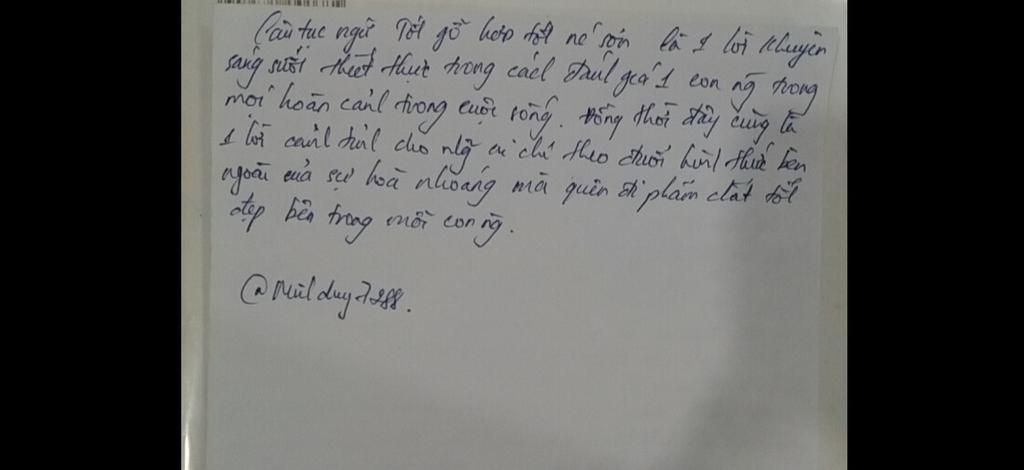 Câu tục ngữ Tốt gỗ hơn tốt nc sơn là 1 lời khuyên
sáng suốt thiết thực trong cách đánh giá 1 con ng trong
mọi hoàn cảnh trong cuộc sống. Đồng thời đây cũng là
1 lời cảnh tỉnh cho nhg ai chỉ theo đuổi hình thức bên
ngoài của sự hoà nhoáng mà quên đi phẩm chất tốt
đẹp bên trong mỗi con ng.
@Minhduy7288.